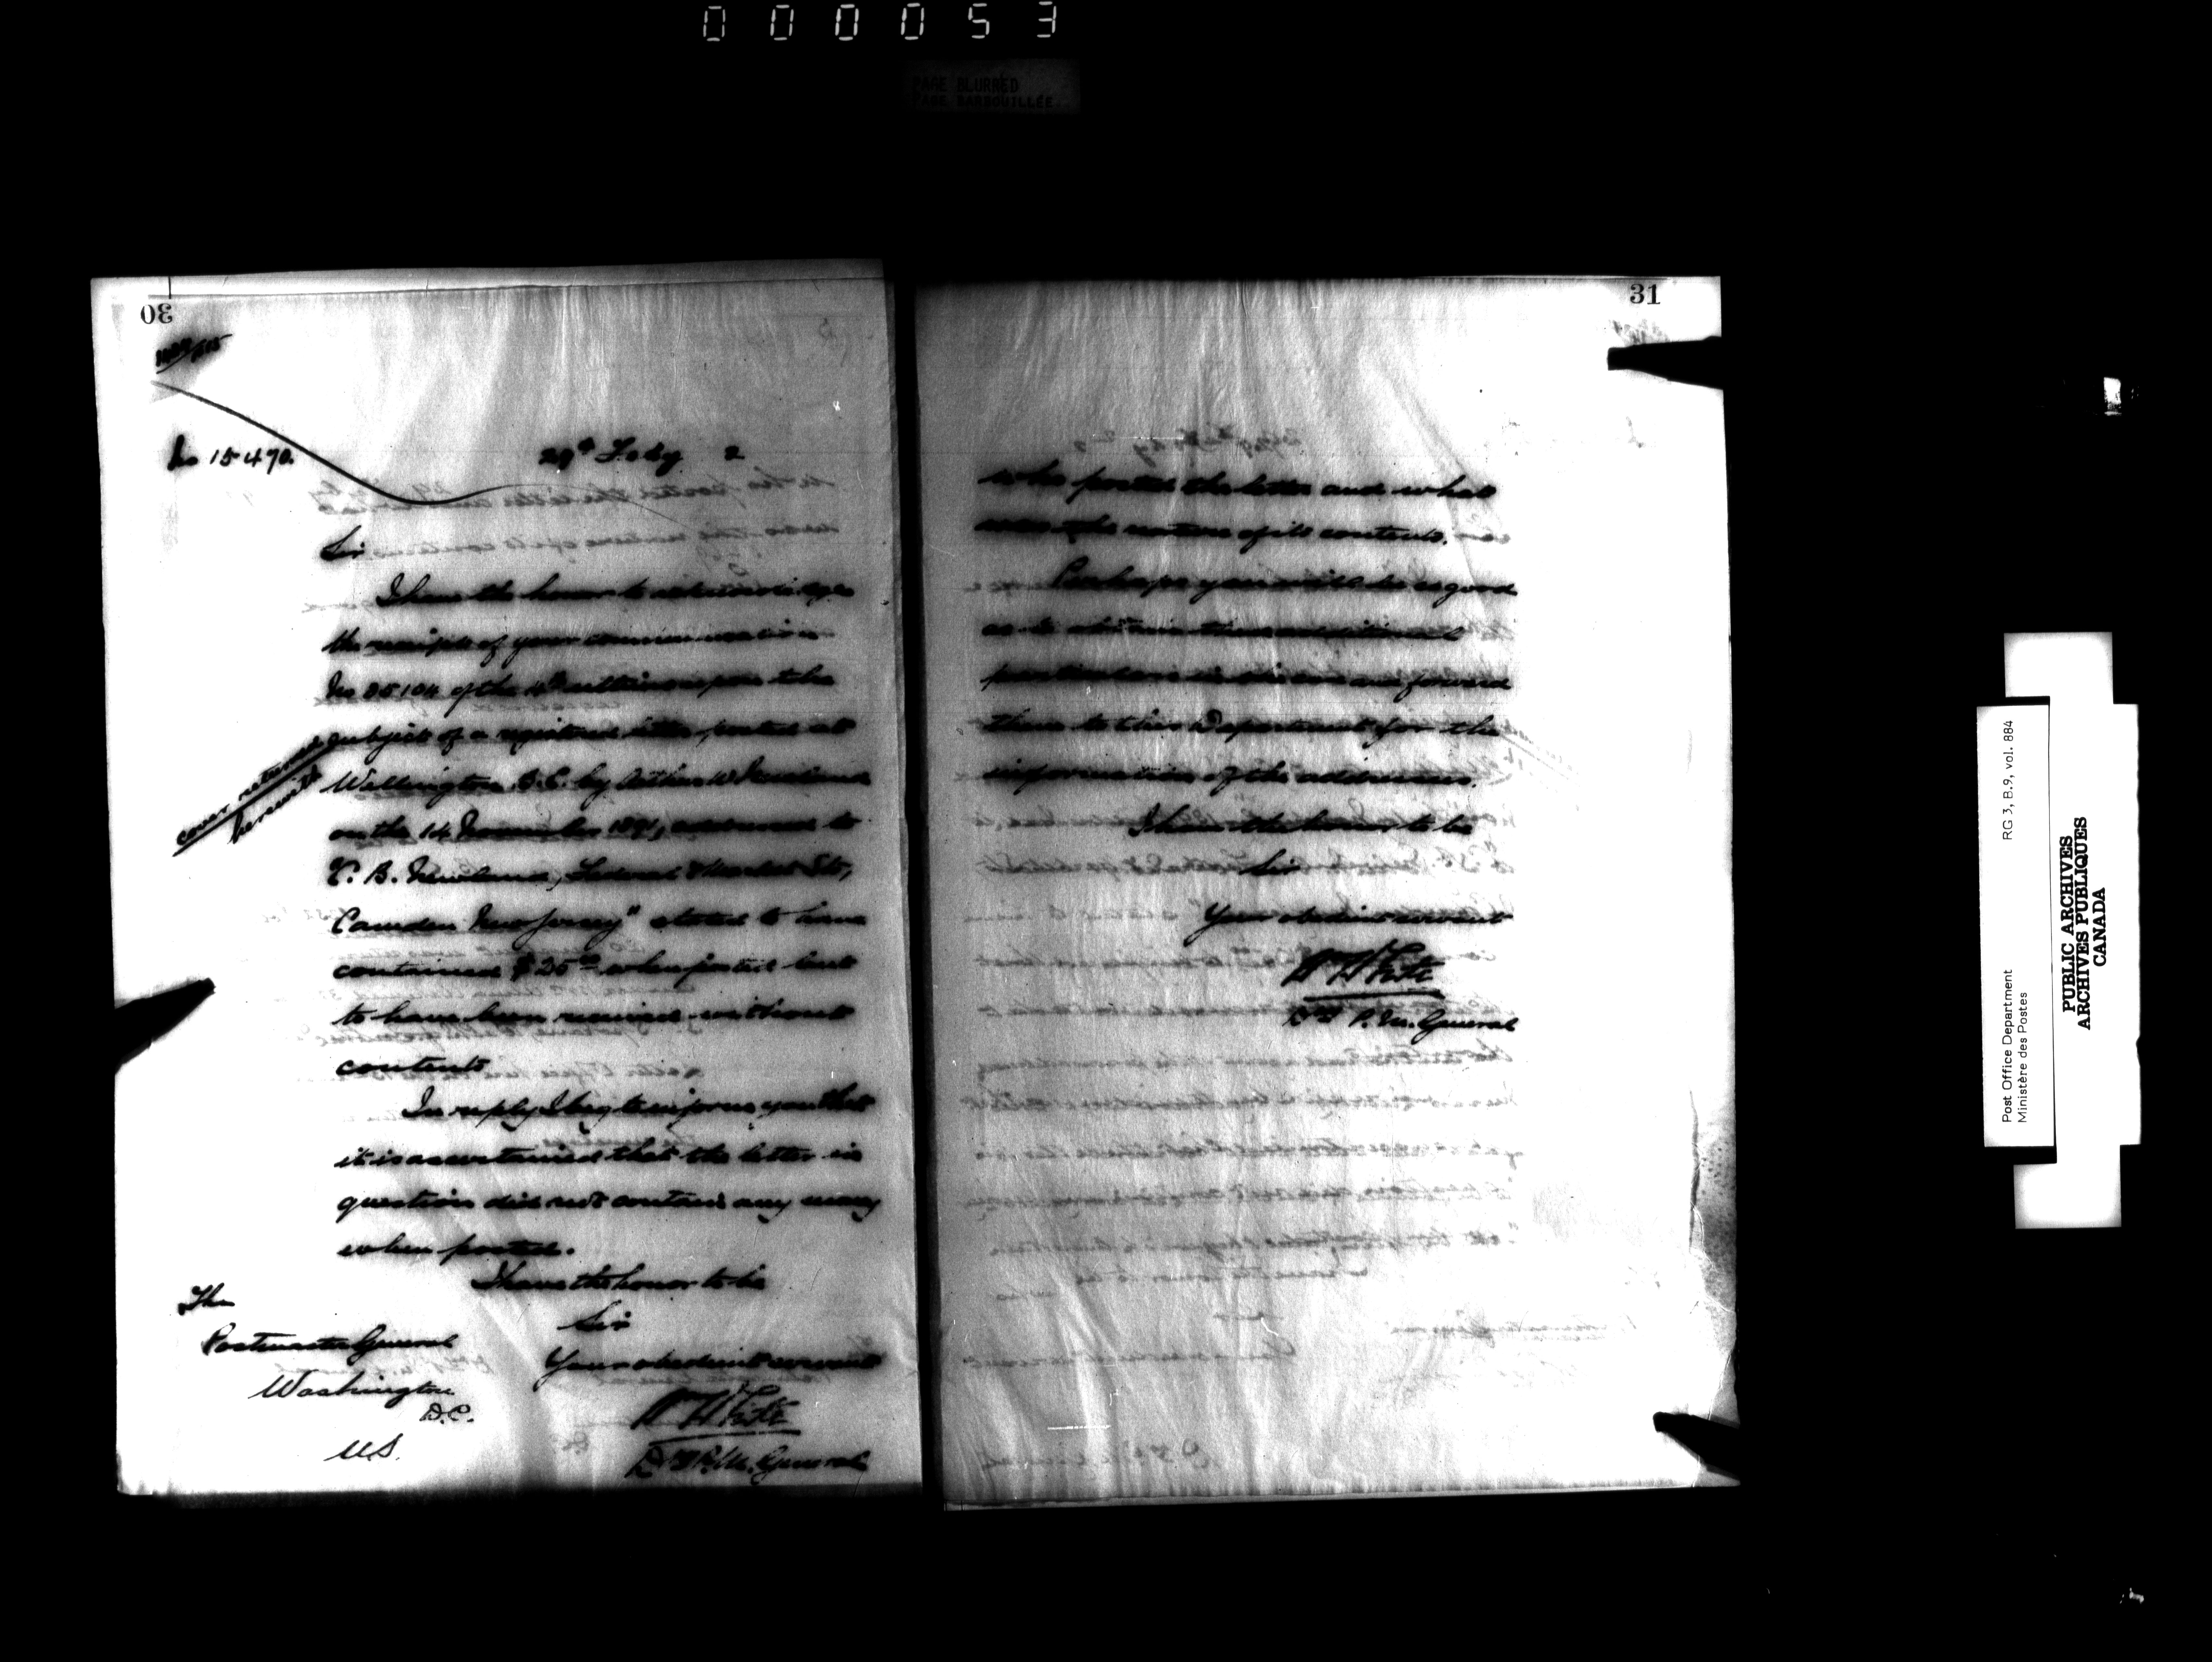 000053
PAGE BLURRED
PAGE BARBOUILLÉE
30
No 15470.
29th Feby 2
Sir
I have the honor to acknowledge
the receipt of your communication
No 25104 of the 4th ultimo upon the
subject of a registered letter posted at
Wellington B.C. by Arthur W Newland
on the 14 November 1891, addressed to
T. B. Newland, Federal & Market Sts,
Camden New Jersey" stated to have
contained $25.00 when posted but
to have been received without
contents
In reply I beg to inform you that
it is ascertained that the letter in
question did not contain any money
when posted.
I have the honor to be
Sir
Your obedient servant
W H White
D P.M. General
cover returned
herewith
The
Postmaster General
Washington
D.C.
U.S.
31
who posted the letter and what
was the nature of its contents.
Perhaps you will be so good
as to obtain these additional
particulars and forward
them to this Department for the
information of the addressee.
I have the honor to be
Sir
Your obedient servant
W H White
P. M. General
Post Office Department
Ministère des Postes
RG 3, B.9, vol. 884
PUBLIC ARCHIVES
ARCHIVES PUBLIQUES
CANADA